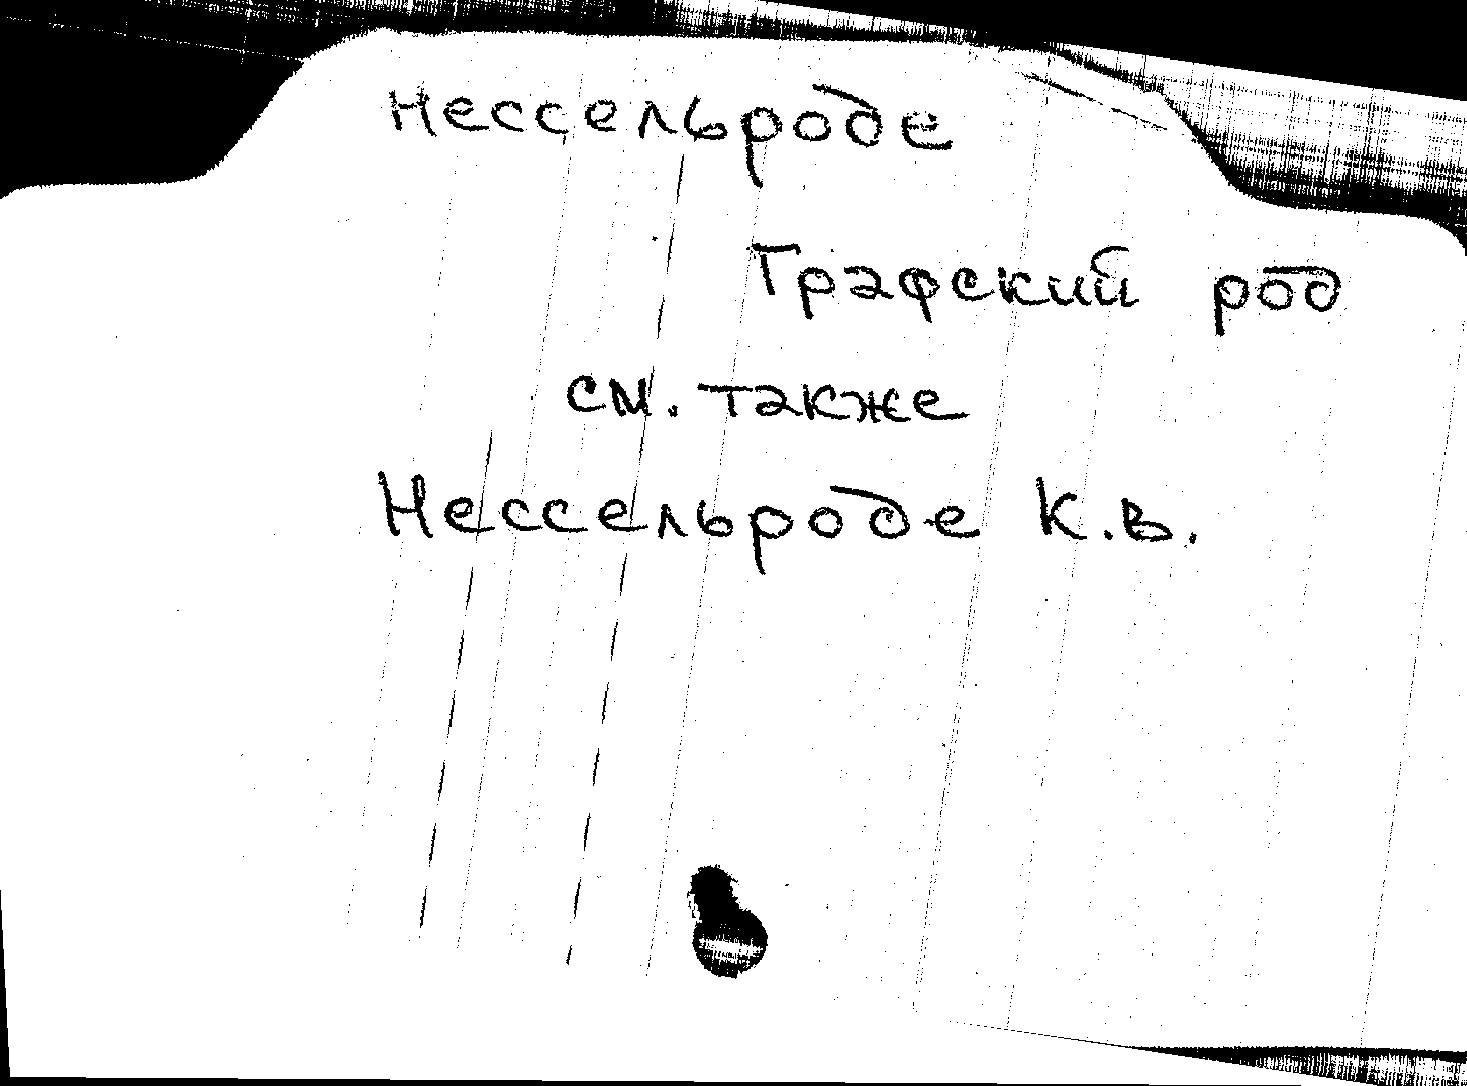 Нессельроде
Графский род
см. также
Нессельроде К.В.